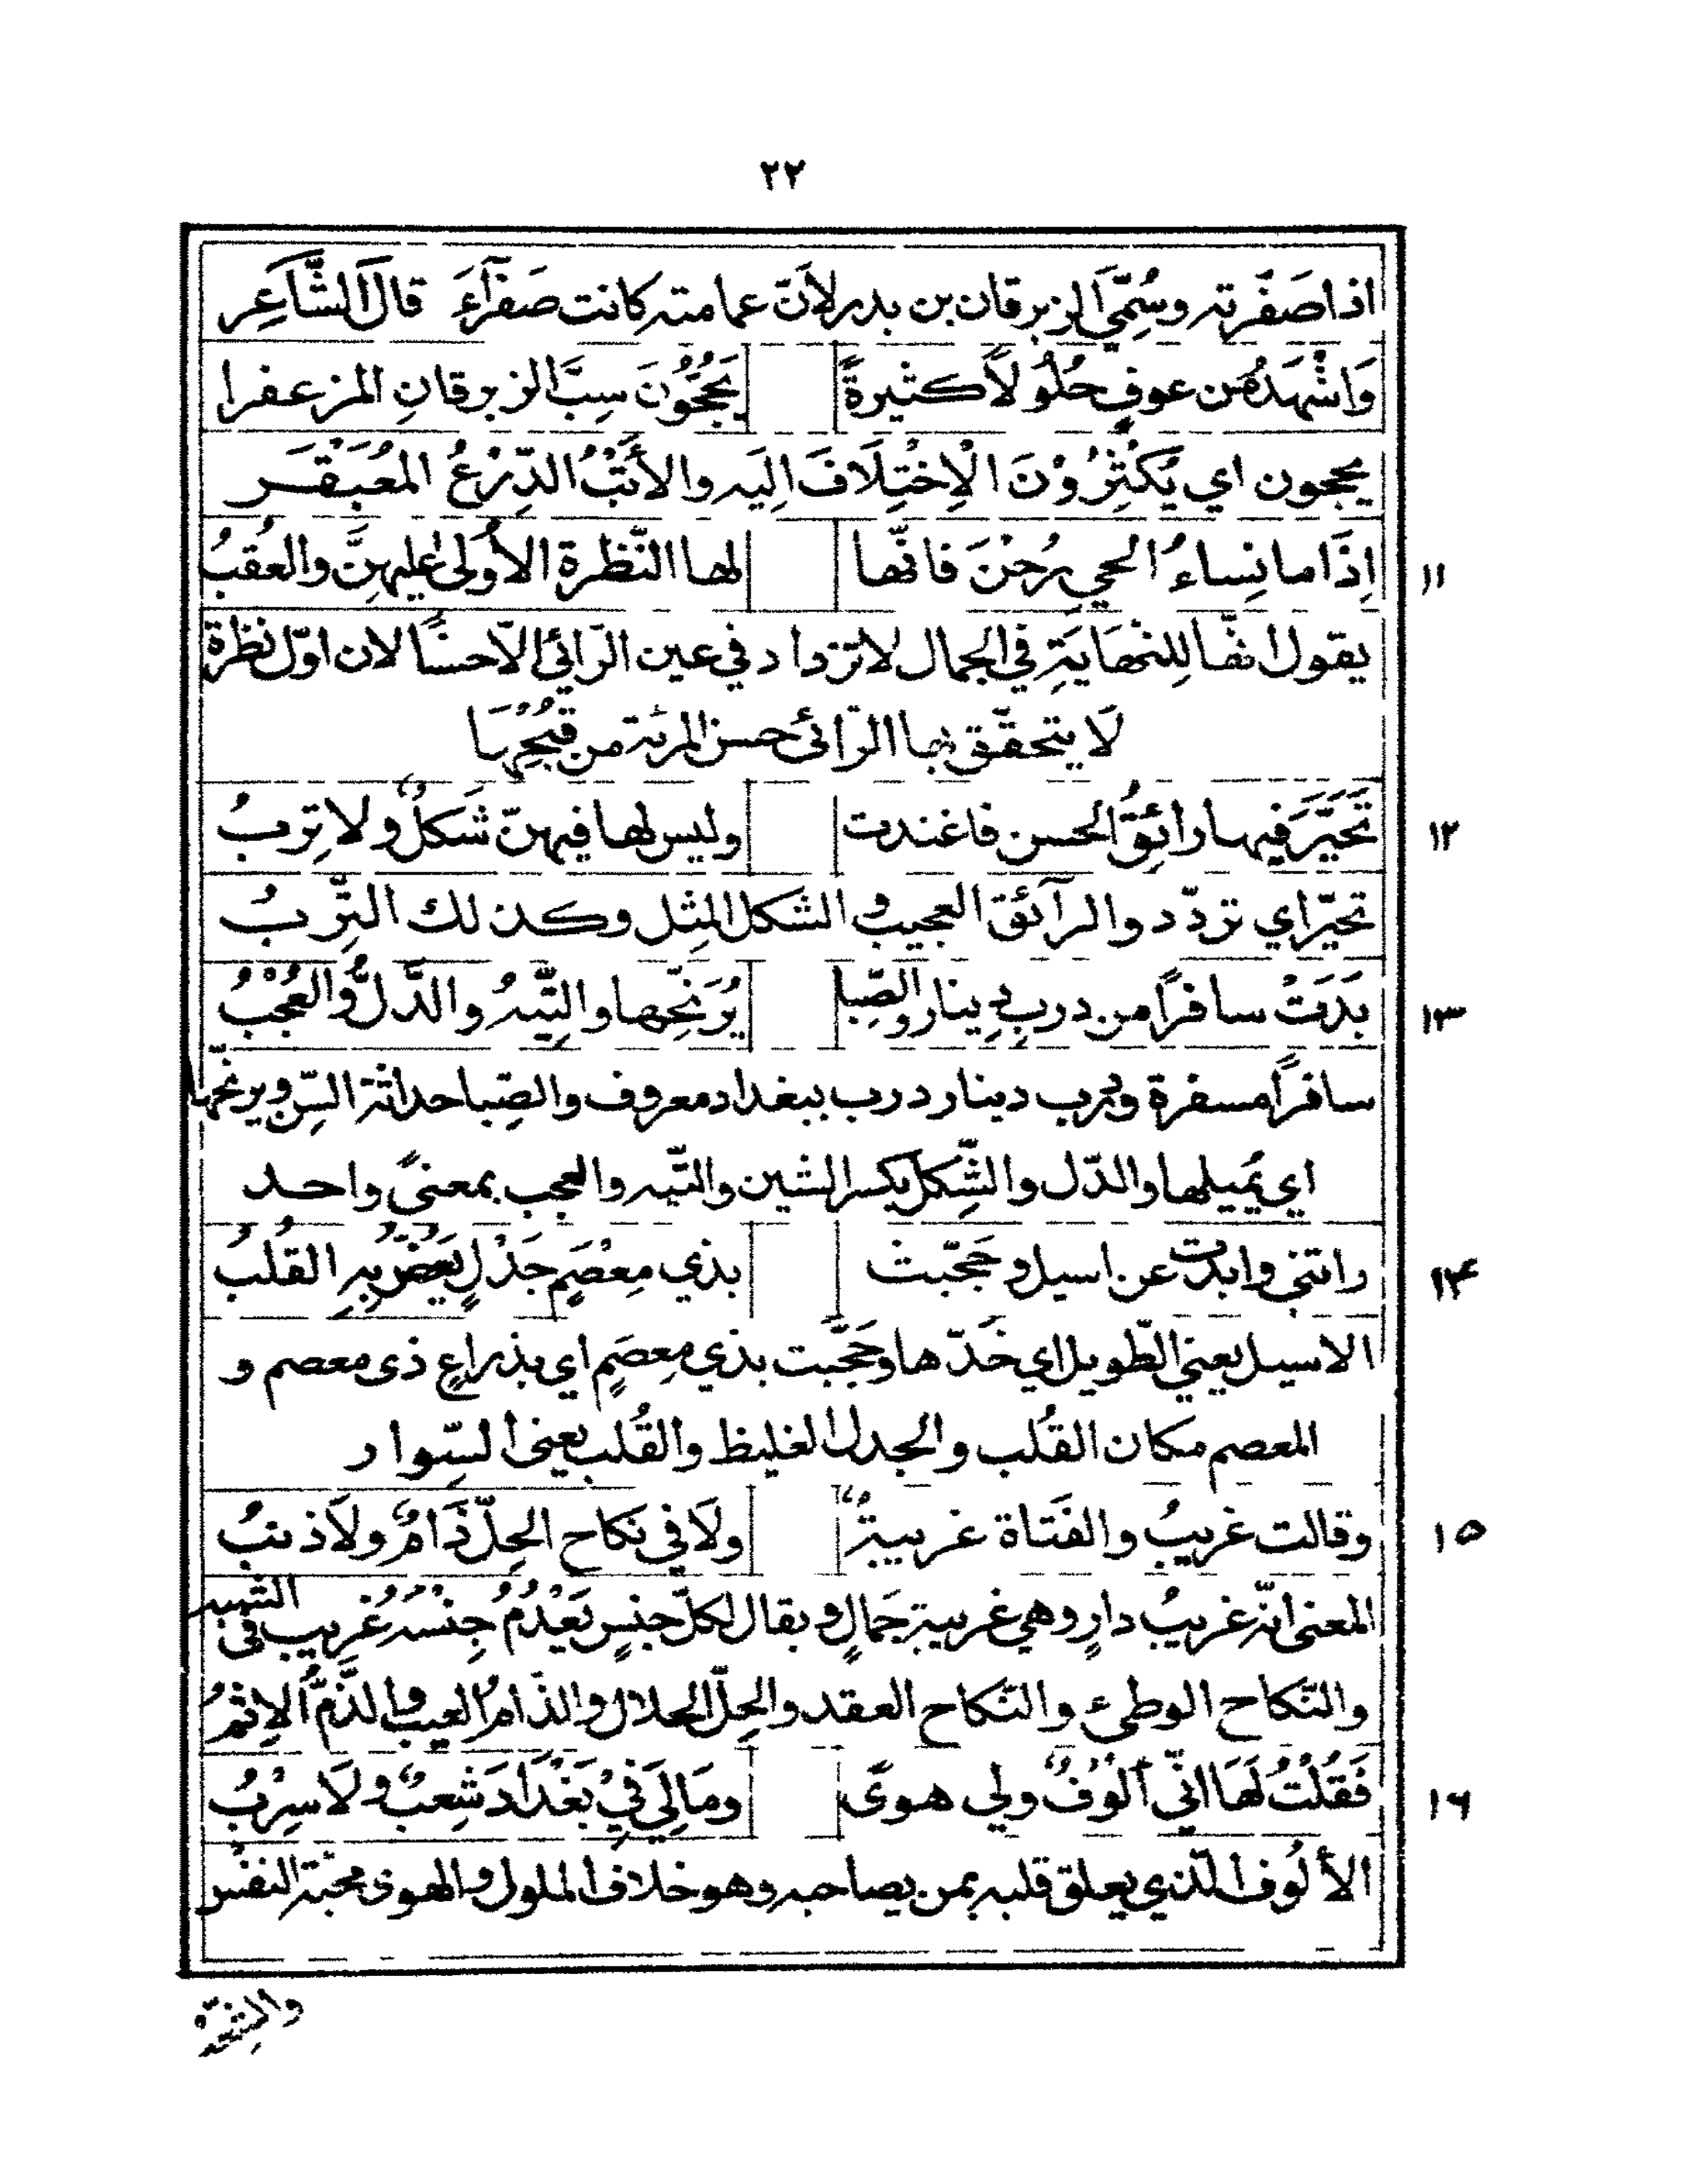 ٢٢
اذا صَفّرته وسُمِّيَ الزبرقان بن بدر لأنّ عمامته كانت صَفرآءَ قالَ الشَّاعِر
وَاشْهَدُ من عوفٍ حُلُولاً كثيرةً يَحُجُّونَ سِبَّ الزبرقانِ المزعفرا
يحجون اي يُكْثِرُوْنَ الْاِخْتِلَافَ اِلَيه والأتْبُ الدِّرْعُ المُعَبْقَر
١١ اِذَا ما نِساءُ الحي رُحْنَ فانّها لها النّظرة الأُولى عليهنَّ والعُقبُ
يقول انّها لِلنّهَايَةِ في الجمال لا تزداد في عين الرّائي الّا حسنًا لان اوّل نظرة
لَا يتحقّق بها الرّائى حسن المرئة من قُبْحِهَا
١٢ تَحَيَّرَ فيها رائِقُ الحسن فاغتدت وليس لها فيهنّ شَكلٌ ولا تِربُ
تحيّر اي تردّد والرآئق العجيب والشكل المِثل وكذلك التِّربُ
١٣ بَدَتْ سافرًا من درب دِينار والصِّبا يُرَنِّحها والتِّيهُ والدَّلُّ والعُجْبُ
سافرًا مسفرة ودرب دينار درب ببغداد معروف والصِّبا حداثة السِّن ويرنّحها
اي يُميلها والدّل والشِّكل بكسر الشين والتّيه والعجب بمعنىً واحد
١٤ راتني وابدت عن اسيل وحَجّبت بذي مِعْصَمٍ جَدْلٍ يَغَصُّ بِهِ القُلبُ
الاسيل يعني الطّويل اي خَدّها وحَجَّبت بذي مِعصَمٍ اي بذراعٍ ذى معصم و
المعصم مكان القُلب والجدل الغليظ والقُلب يعنى السِّوار
١٥ وقالت غريبُ والفَتاة غريبةٌ ولَا في نكاح الحِلّ ذَامٌ ولَا ذنبُ
المعنى انّه غريبُ دارٍ وهي غريبة جَمالٍ ويقال لكلّ جنسٍ يَعْدُمُ جِنْسَهُ غُرِيب فى الشهر
والنّكاح الوطىء والنّكاح العقد والحِلّ الحلال والذّامُ العيب والذَّمُّ الاِثمُ
١٦ فَقُلْتُ لَهَا اِنّي اَلُوْفٌ ولي هوىً ومَا لِيَ فِيْ بَغْدَادَ شَعِبٌ ولَا سِرْبُ
الألُوف الّذي يعلق قلبه بمن يصاحبه وهو خلاف الملول والهوى محبّة النفس